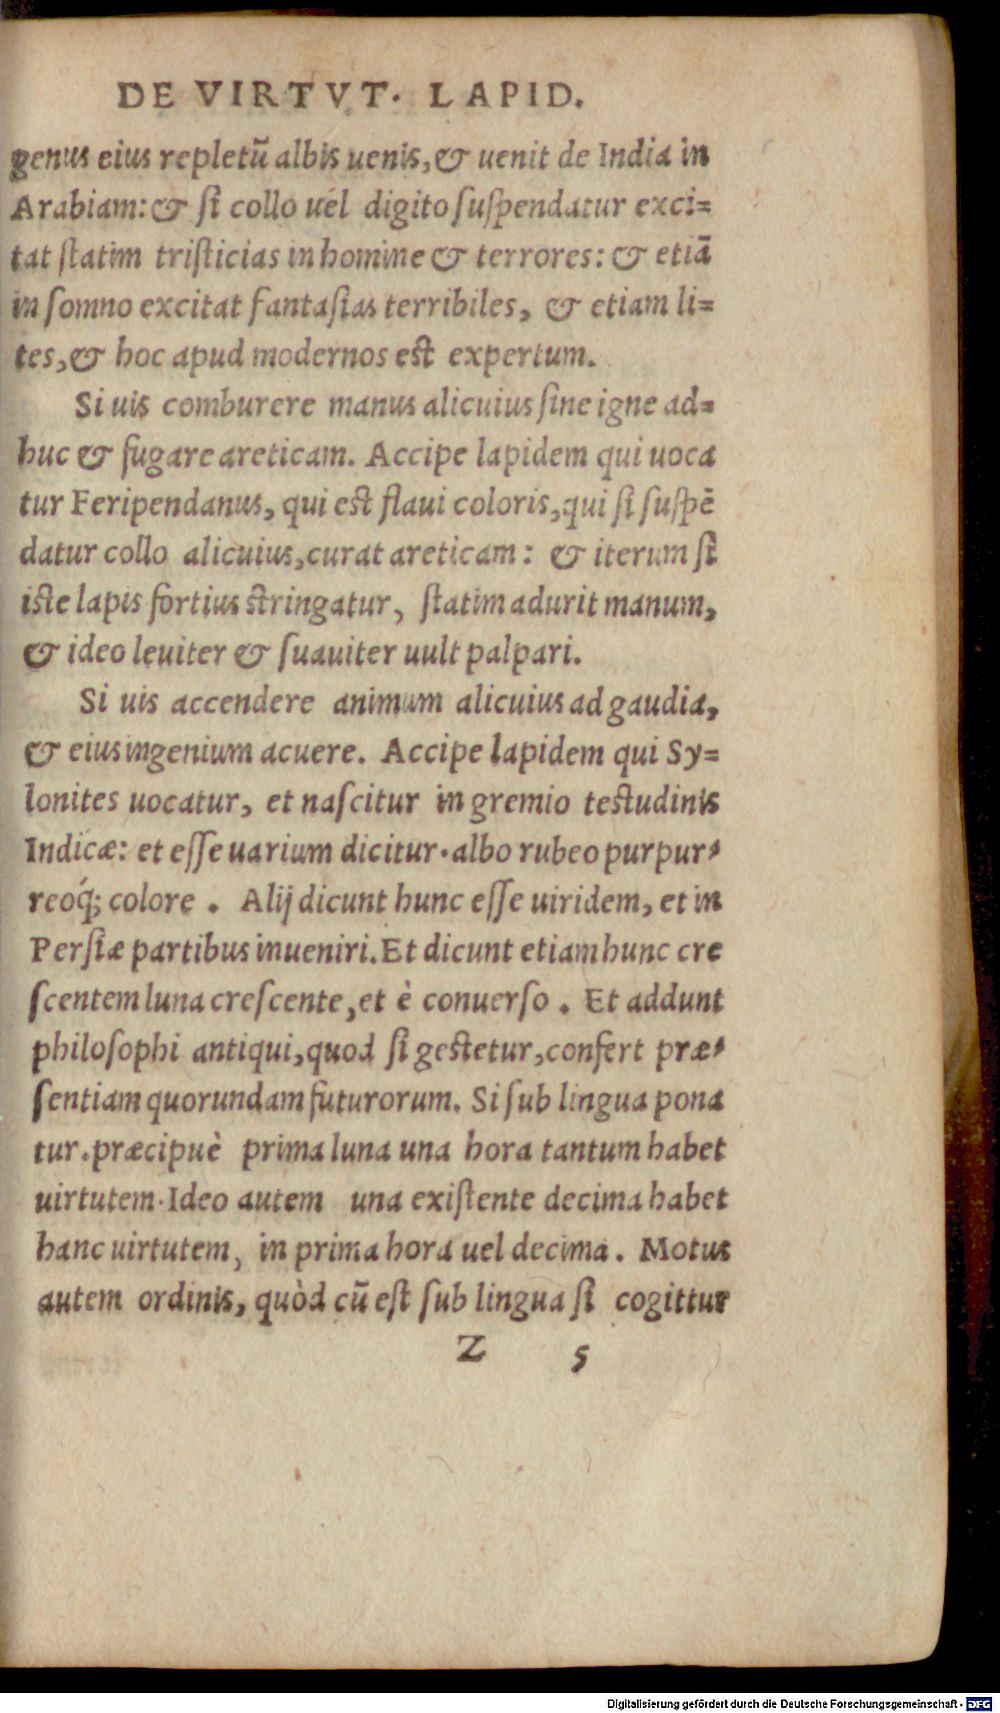 DE VIRTVT. LAPID.
genus eius repletũ albis uenis, & uenit de India in
Arabiam: & ſi collo uel digito ſuſpendatur exci=
tat ſtatim triſticias in homine & terrores: & etiã
in ſomno excitat fantaſias terribiles, & etiam li=
tes, & hoc apud modernos est expertum.
Si uis comburere manus alicuius ſine igne ad=
huc & fugare areticam. Accipe lapidem qui uoca
tur Feripendanus, qui est flaui coloris, qui ſi ſuſpẽ
datur collo alicuius, curat areticam: & iterum ſi
iste lapis fortius stringatur, ſtatim adurit manum,
& ideo leuiter & ſuauiter uult palpari.
Si uis accendere animum alicuius ad gaudia,
& eius ingenium acuere. Accipe lapidem qui Sy=
lonites uocatur, et naſcitur in gremio testudinis
Indicæ: et eſſe uarium dicitur. albo rubeo purpur=
reoq́; colore . Alij dicunt hunc eſſe uiridem, et in
Perſiæ partibus inueniri. Et dicunt etiam hunc cre
ſcentem luna creſcente, et è conuerſo . Et addunt
philoſophi antiqui, quod ſi gestetur, confert præ=
ſentiam quorundam futurorum. Si ſub lingua pona
tur. præcipuè prima luna una hora tantum habet
uirtutem. Ideo autem una exiſtente decima habet
hanc uirtutem, in prima hora uel decima . Motus
autem ordinis, quòd cũ eſt ſub lingua ſi cogittur
Z 5
Digitalisierung gefördert durch die Deutsche Forschungsgemeinschaft - DFG